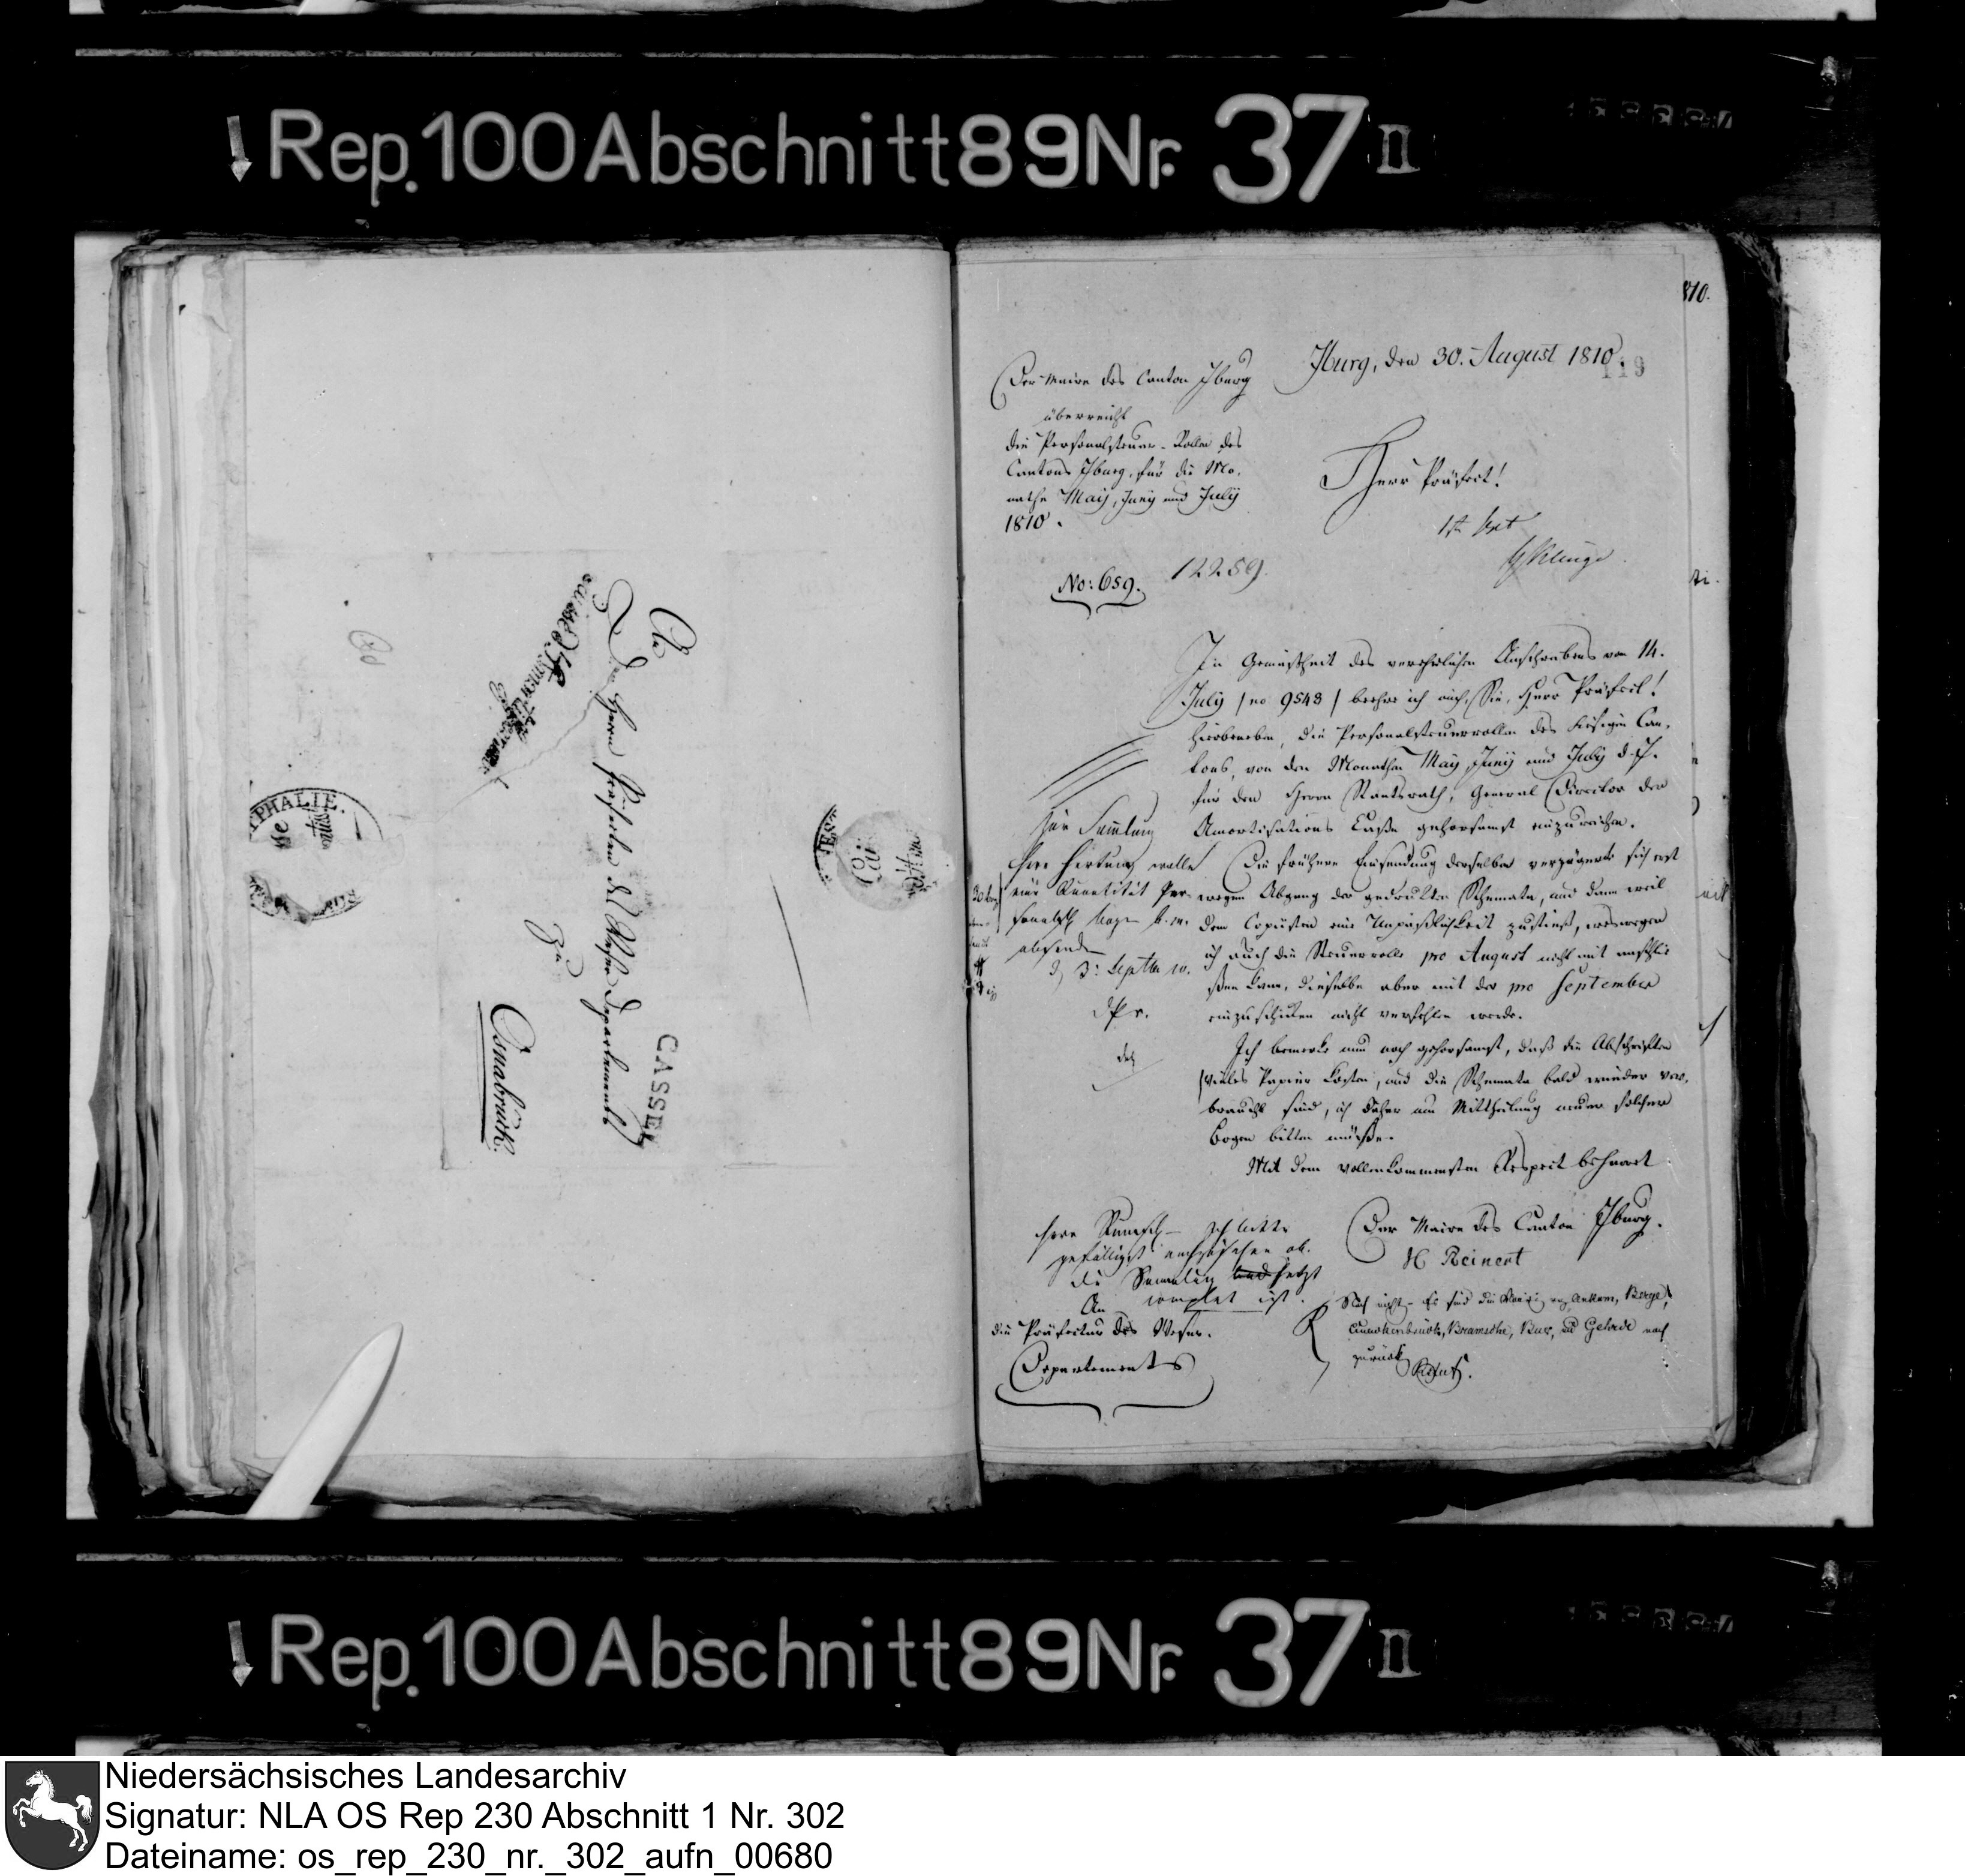 Rep. 100 Abschnitt 89 Nr. 37 II
An
Den Herrn Präfecten des Weser-Departements
Zu
Osnabrück.
CASSEL
PHALIE.
Iburg, den 30. August 1810.
119
Der Maire des Canton Iburg
überreicht
die Personalsteuer-Rollen des
Cantons Iburg, für die Mo-
nathe May, Juny und July
1810.
Herr Präfect!
1ten Sept
No: 659.
12259.
In Gemäsheit des verehrlichen Anschreibens vom 14.
July / no 9543 / beehre ich mich, Sie, Herr Präfect!
hierbeneben, die Personalsteuerrollen des hiesigen Can-
tons, von den Monathen May Juny und July d. J.
für den Herrn Staatsrath, General Director der
Amortisations Casse gehorsamst einzureichen.
Die frühere Einsendung derselben verzögerte sich erst
wegen Abgang der gedruckten Schemata, und dann weil
dem Copiisten eine Unpäßlichkeit zustieß, weswegen
ich auch die Steuerrolle pro August nicht mit anschlie
ßen kann, dieselbe aber mit der pro September
einzuschicken nicht verfehlen werde.
Ich bemerke nur noch gehorsamst, daß die Abschriften
vieles Papier kosten, und die Schemata bald wieder ver-
braucht sind, ich daher um Mittheilung neuer solcher
Bogen bitten müsse.
Mit dem vollenkommensten Respect beharret
Der Maire des Canton Iburg.
H Reinert
zur Sammlung
Herr Hartung wolle
eine Quantität Per-
absenden
3t Septbr 10.
Herr ich bitte
gefälligst nachzusehen ob
die Sammlung jetzt
complet ist.
Noch nicht - Es sind die von Ankum, Berge,
Quackenbrück, Bramsche, und Gehrde noch
zurück
An
die Präfectur des Weser-
Departements
Rep. 100 Abschnitt 89 Nr. 37 II
Niedersächsisches Landesarchiv
Signatur: NLA OS Rep 230 Abschnitt 1 Nr. 302
Dateiname: os_rep_230_nr._302_aufn_00680